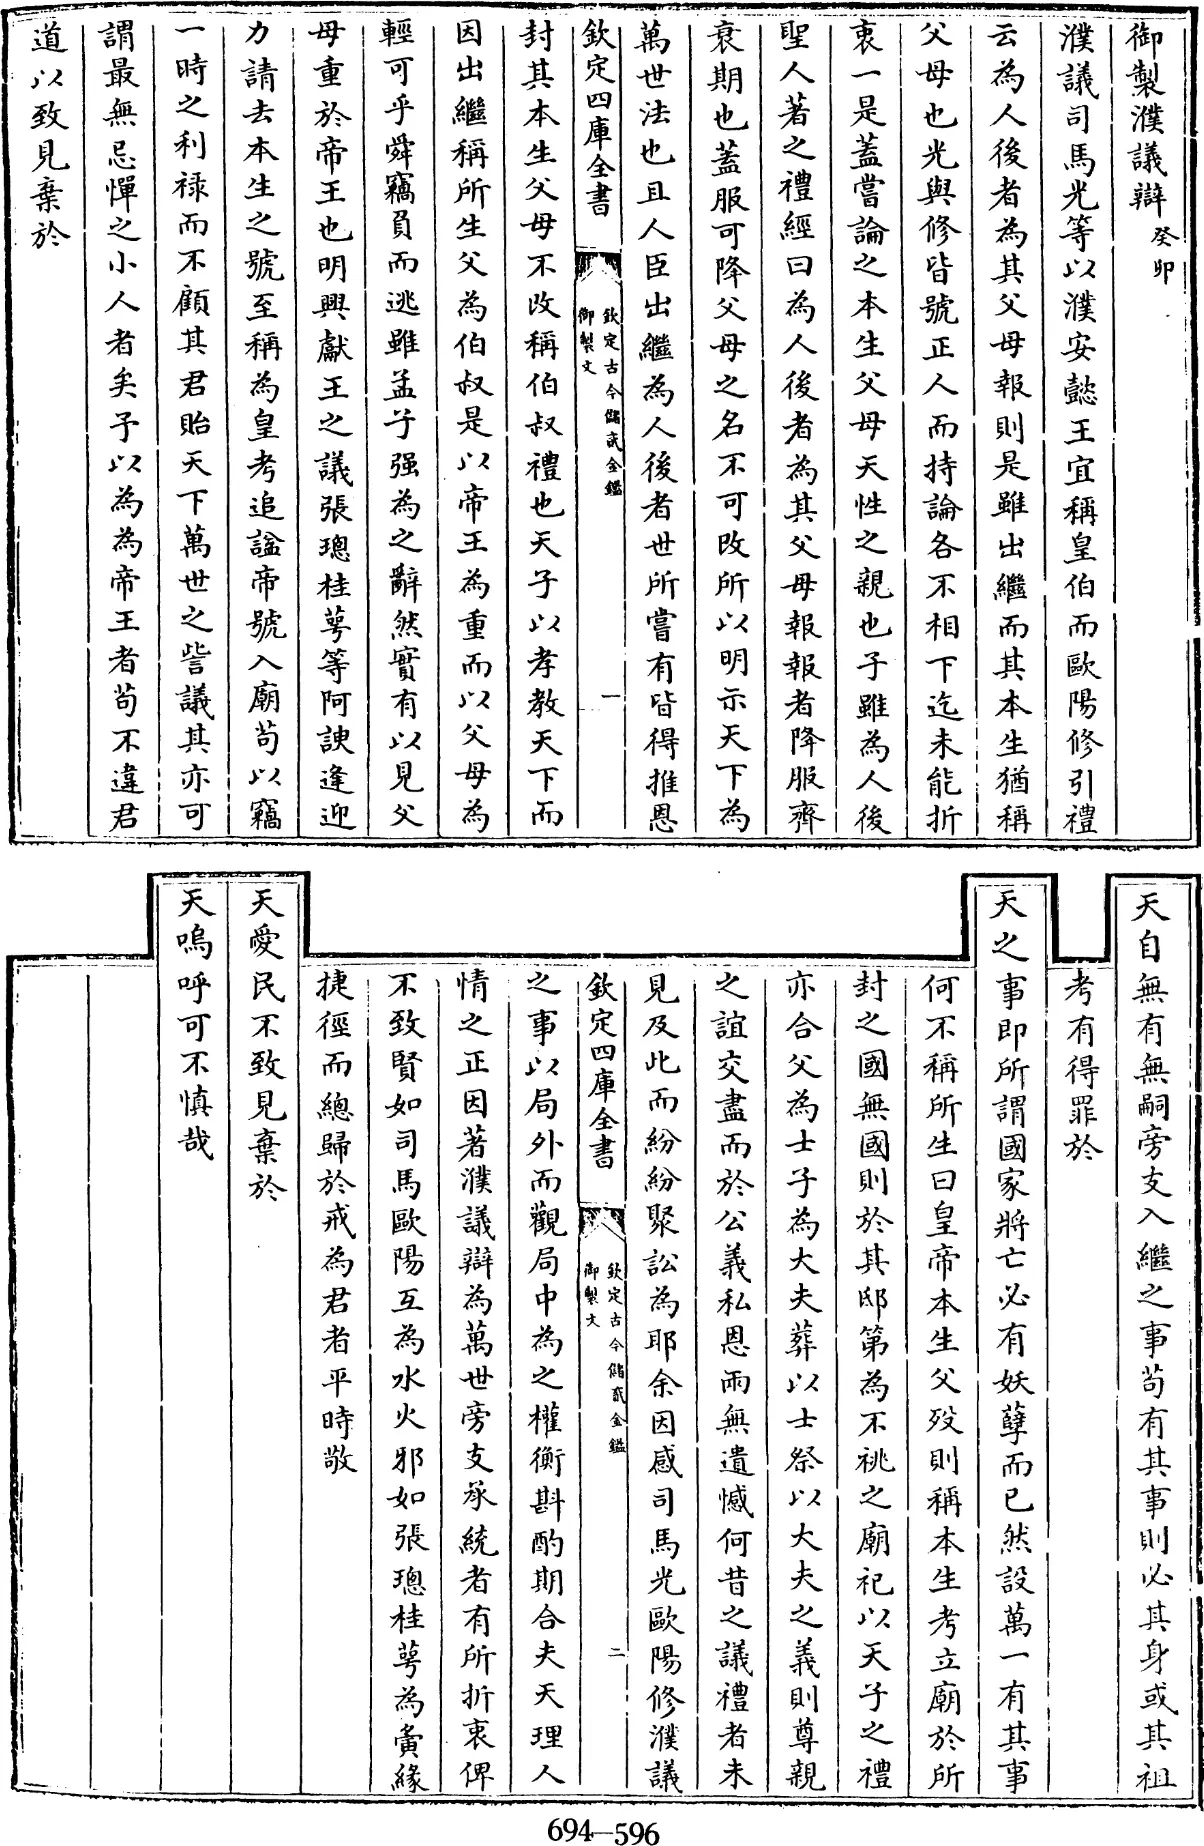 御製濮議辯癸卯
濮議司馬光等以濮安懿王宜稱皇伯而歐陽修引禮
云為人後者為其父母報則是雖出繼而其本生猶稱
父母也光與修皆號正人而持論各不相下迄未能折
衷一是蓋嘗論之本生父母天性之親也子雖為人後
聖人著之禮經曰為人後者為其父母報報者降服齊
衰期也蓋服可降父母之名不可改所以明示天下為
萬世法也且人臣出繼為人後者世所嘗有皆得推恩
欽定四庫全書
欽定古今儲貳金鑑
御製文
一
封其本生父母不改稱伯叔禮也天子以孝教天下而
因出繼稱所生父為伯叔是以帝王為重而以父母為
輕可乎舜竊負而逃雖孟子强為之辭然實有以見父
母重於帝王也明興獻王之議張璁桂萼等阿諛逢迎
力請去本生之號至稱為皇考追諡帝號入廟苟以竊
一時之利祿而不顧其君貽天下萬世之訾議其亦可
謂最無忌憚之小人者矣予以為為帝王者苟不違君
道以致見棄於
天自無有無嗣旁支入繼之事苟有其事則必其身或其祖
考有得罪於
天之事即所謂國家將亡必有妖孽而已然設萬一有其事
何不稱所生曰皇帝本生父歿則稱本生考立廟於所
封之國無國則於其邸第為不祧之廟祀以天子之禮
亦合父為士子為大夫葬以士祭以大夫之義則尊親
之誼交盡而於公義私恩兩無遺憾何昔之議禮者未
見及此而紛紛聚訟為耶余因感司馬光歐陽修濮議
欽定四庫全書
欽定古今儲貳金鑑
御製文
二
之事以局外而觀局中為之權衡斟酌期合夫天理人
情之正因著濮議辯為萬世旁支承統者有所折衷俾
不致賢如司馬歐陽互為水火邪如張璁桂萼為夤緣
捷徑而總歸於戒為君者平時敬
天愛民不致見棄於
天嗚呼可不慎哉
694—596